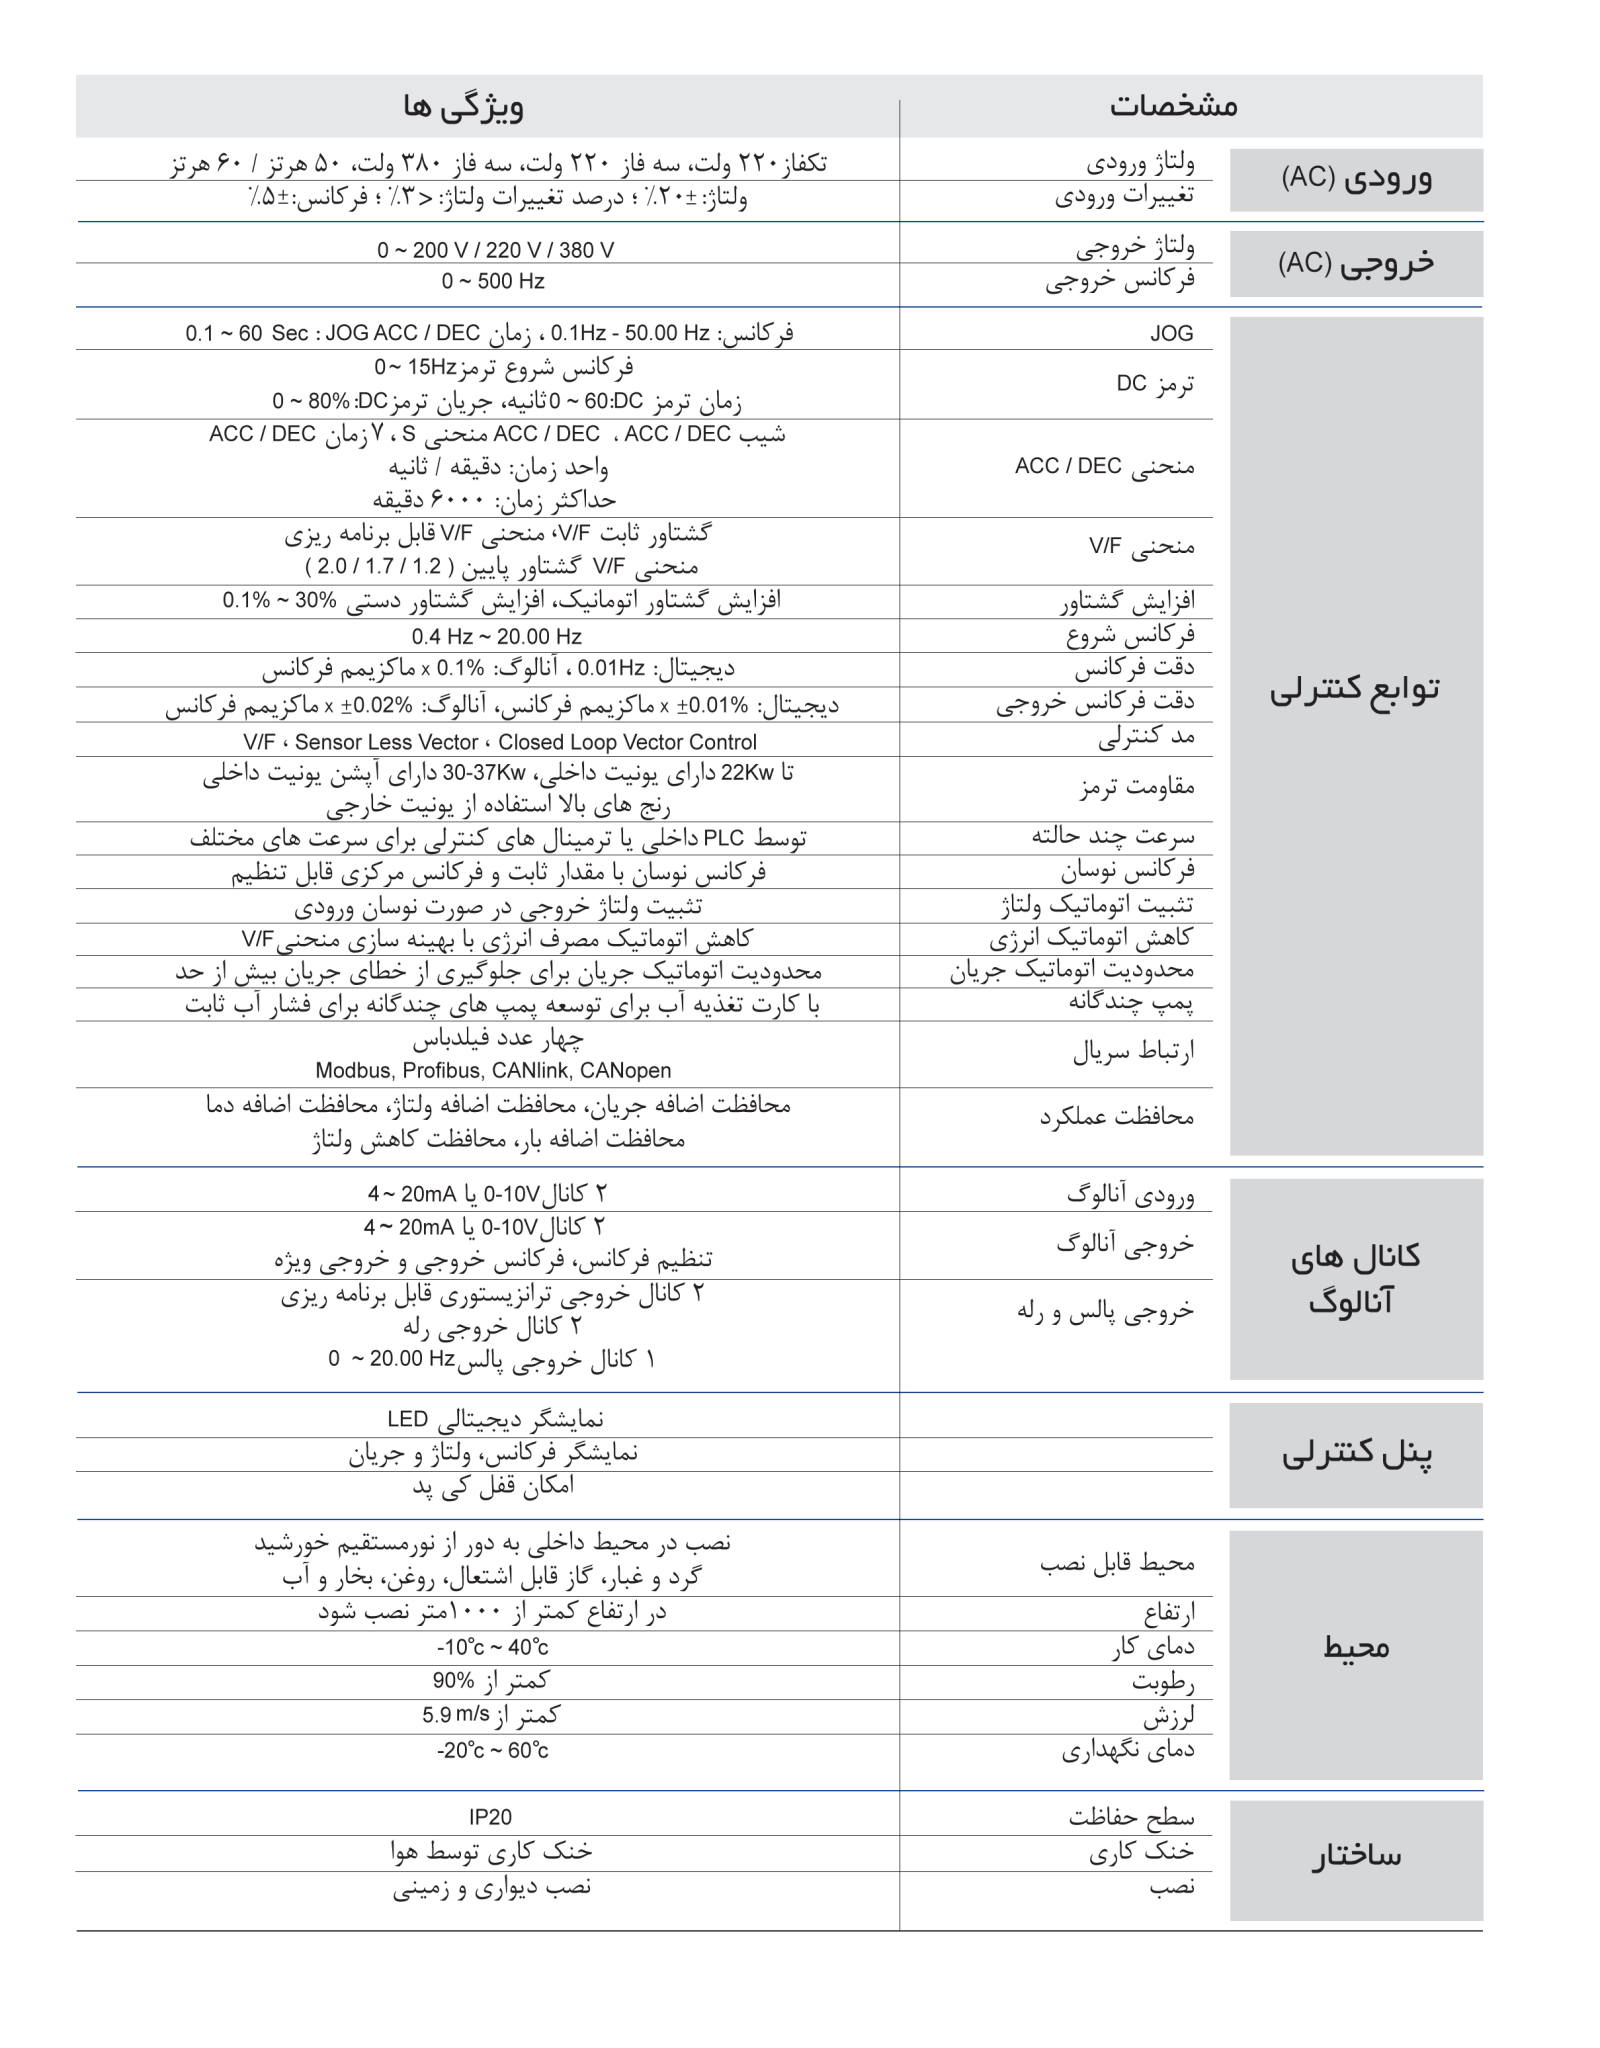 مشخصات
ویژگی ها
ورودی (AC)
ولتاژ ورودی
تکفاز۲۲۰ ولت، سه فاز ۲۲۰ ولت، سه فاز ۳۸۰ ولت، ۵۰ هرتز / ۶۰ هرتز
تغییرات ورودی
ولتاژ:±۲۰٪ ؛ درصد تغییرات ولتاژ: <۳٪ ؛ فرکانس:±۵٪
خروجی (AC)
ولتاژ خروجی
0 ~ 200 V / 220 V / 380 V
فرکانس خروجی
0 ~ 500 Hz
توابع کنترلی
JOG
فرکانس: 0.1Hz - 50.00 Hz ، زمان JOG ACC / DEC : 0.1 ~ 60 Sec
ترمز DC
فرکانس شروع ترمز0~ 15Hz
زمان ترمز DC:‏0 ~ 60ثانیه، جریان ترمزDC:‏0 ~ 80%
منحنی ACC / DEC
شیب ACC / DEC ، ACC / DEC منحنی S ، ۷زمان ACC / DEC
واحد زمان: دقیقه / ثانیه
حداکثر زمان: ۶۰۰۰ دقیقه
منحنی V/F
گشتاور ثابت V/F، منحنی V/F قابل برنامه ریزی
منحنی V/F گشتاور پایین ( 1.2 / 1.7 / 2.0 )
افزایش گشتاور
افزایش گشتاور اتومانیک، افزایش گشتاور دستی 0.1% ~ 30%
فرکانس شروع
0.4 Hz ~ 20.00 Hz
دقت فرکانس
دیجیتال: 0.01Hz ، آنالوگ: 0.1% x ماکزیمم فرکانس
دقت فرکانس خروجی
دیجیتال: ±0.01% x ماکزیمم فرکانس، آنالوگ: ±0.02% x ماکزیمم فرکانس
مد کنترلی
V/F ، Sensor Less Vector ، Closed Loop Vector Control
مقاومت ترمز
تا 22Kw دارای یونیت داخلی، 30-37Kw دارای آپشن یونیت داخلی
رنج های بالا استفاده از یونیت خارجی
سرعت چند حالته
توسط PLC داخلی یا ترمینال های کنترلی برای سرعت های مختلف
فرکانس نوسان
فرکانس نوسان با مقدار ثابت و فرکانس مرکزی قابل تنظیم
تثبیت اتوماتیک ولتاژ
تثبیت ولتاژ خروجی در صورت نوسان ورودی
کاهش اتوماتیک انرژی
کاهش اتوماتیک مصرف انرژی با بهینه سازی منحنیV/F
محدودیت اتوماتیک جریان
محدودیت اتوماتیک جریان برای جلوگیری از خطای جریان بیش از حد
پمپ چندگانه
با کارت تغذیه آب برای توسعه پمپ های چندگانه برای فشار آب ثابت
ارتباط سریال
چهار عدد فیلدباس
Modbus, Profibus, CANlink, CANopen
محافظت عملکرد
محافظت اضافه جریان، محافظت اضافه ولتاژ، محافظت اضافه دما
محافظت اضافه بار، محافظت کاهش ولتاژ
کانال های
آنالوگ
ورودی آنالوگ
۲ کانال0-10V یا 4~ 20mA
خروجی آنالوگ
۲ کانال0-10V یا 4~ 20mA
تنظیم فرکانس، فرکانس خروجی و خروجی ویژه
خروجی پالس و رله
۲ کانال خروجی ترانزیستوری قابل برنامه ریزی
۲ کانال خروجی رله
۱ کانال خروجی پالس0 ~ 20.00 Hz
پنل کنترلی
نمایشگر دیجیتالی LED
نمایشگر فرکانس، ولتاژ و جریان
امکان قفل کی پد
محیط
محیط قابل نصب
نصب در محیط داخلی به دور از نورمستقیم خورشید
گرد و غبار، گاز قابل اشتعال، روغن، بخار و آب
ارتفاع
در ارتفاع کمتر از ۱۰۰۰متر نصب شود
دمای کار
-10°c ~ 40°c
رطوبت
کمتر از 90%
لرزش
کمتر از 5.9 m/s
دمای نگهداری
-20°c ~ 60°c
ساختار
سطح حفاظت
IP20
خنک کاری
خنک کاری توسط هوا
نصب
نصب دیواری و زمینی